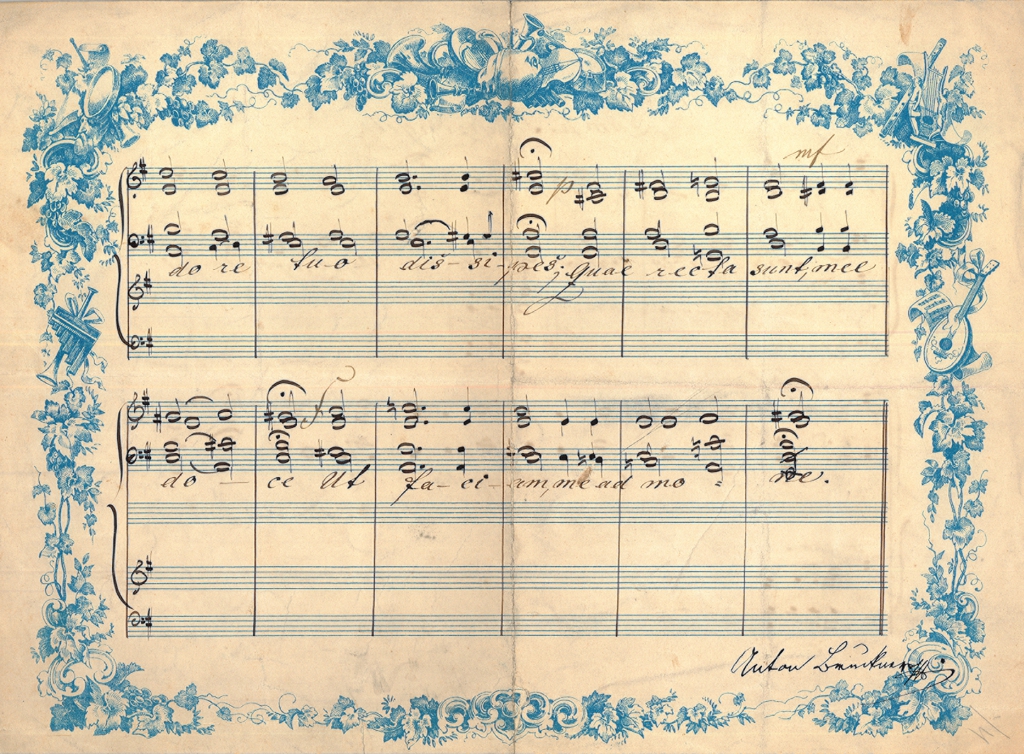 mf
p
do re tu-o dis- si- pes; quae recta sunt, mee
f
do — ce Ut fa- ci- am, me ad mo = ne.
Anton Bruckner